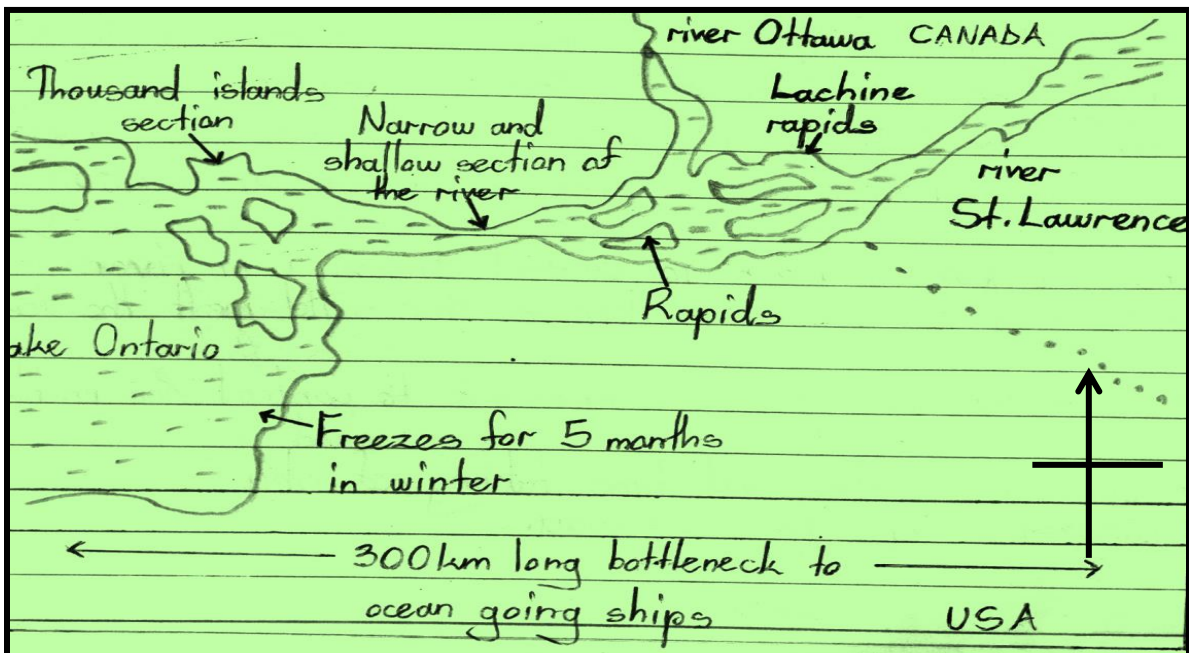 river Ottawa CANADA
Thousand islands
section
Lachine
rapids
Narrow and
shallow section of
the river
river
St. Lawrence
Rapids
ake Ontario
Freezes for 5 months
in winter
300km long bottleneck to
ocean going ships
USA